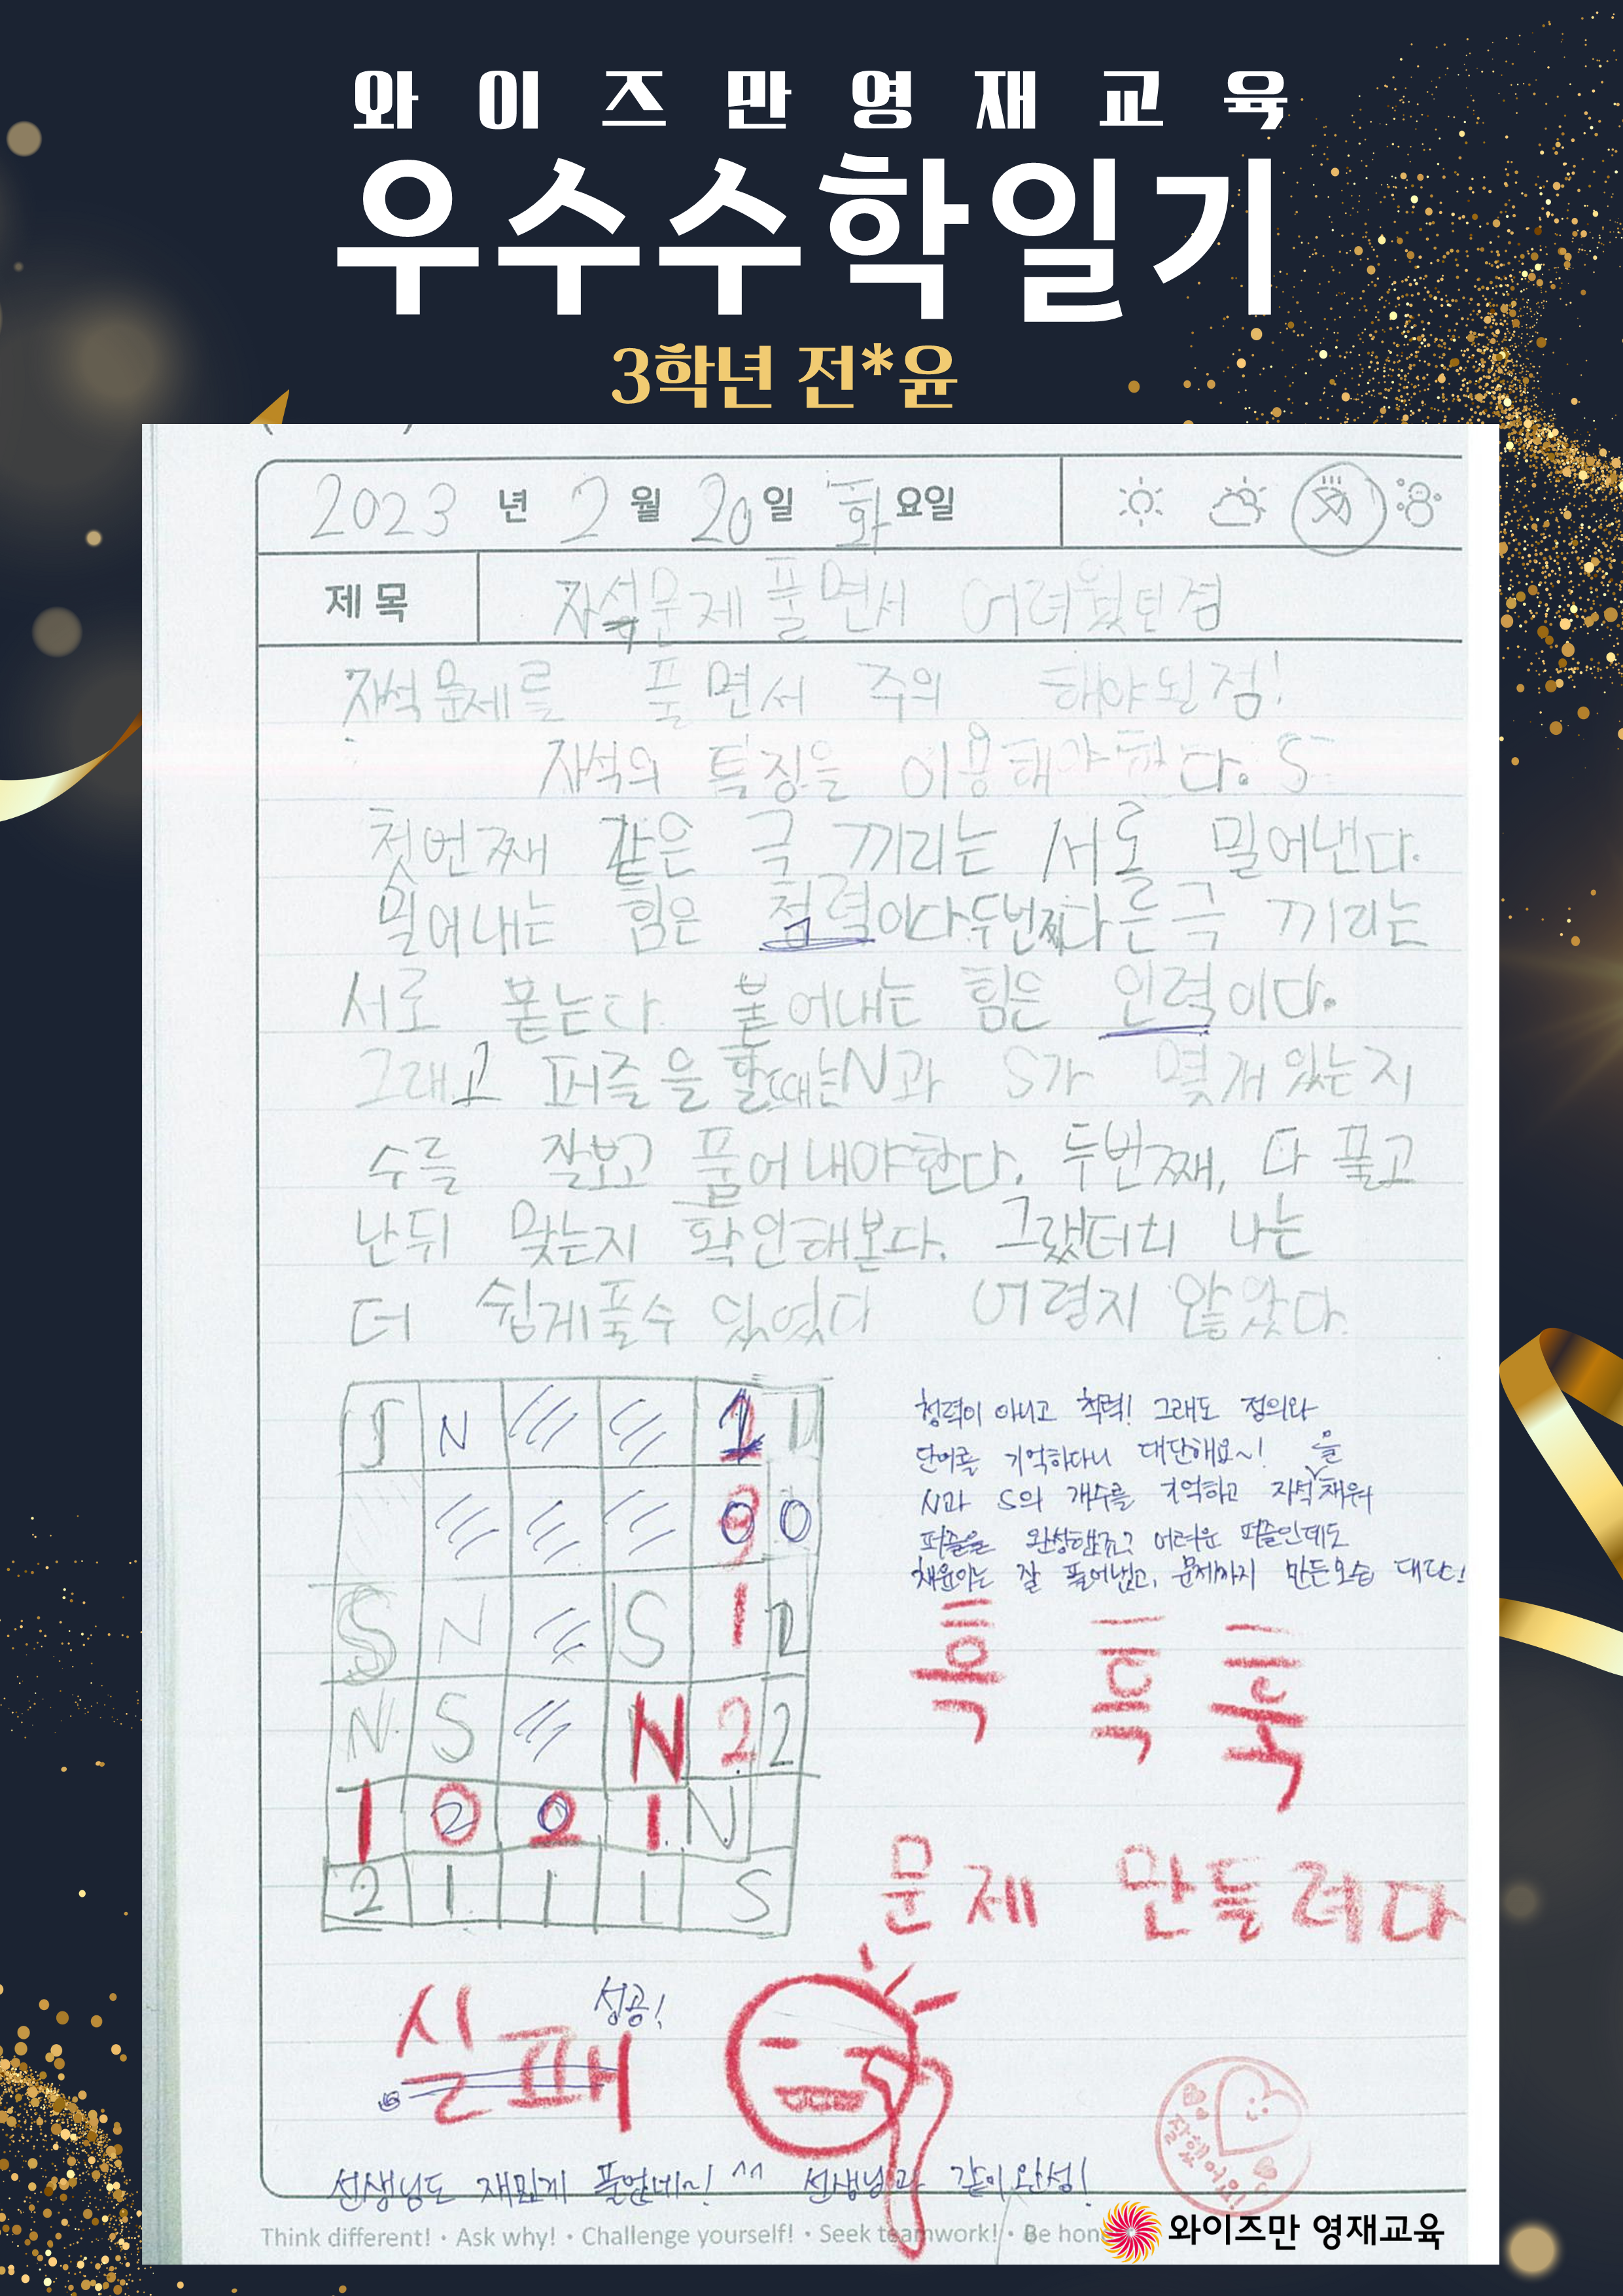 와이즈만영재교육
우수수학일기
3학년 전*윤
2023 년 2 월 20 일 화 요일
제 목 자석문제 풀면서 어려웠던점
자석문제를 풀면서 주의 해야될점!
자석의 특징을 이용해야한다. S
첫번째 같은 극 끼리는 서로 밀어낸다.
밀어내는 힘은 첨력이다 두번째 다른극 끼리는
서로 붇는다. 붙어내는 힘은 인력이다.
그래고 퍼즐을 할때는 N과 S가 몇개 있는지
수를 잘보고 풀어내야한다. 두번째, 다 풀고
난뒤 맞는지 확인해본다. 그랬더니 나는
더 쉽게풀수 있었다 어렵지 않았다.
S N 1 1
0 0
S N S 1 2
N S N 2 2
1 2 0 1 N
2 1 1 1 S
청력이 아니고 척력! 그래도 정의와
단어를 기억하다니 대단해요~!
N과 S의 개수를 기억하고 자석을 채워
퍼즐을 완성했죠? 어려운 퍼즐인데도
채윤이는 잘 풀어냈고, 문제까지 만든모습 대단!
흑 흑 훅
문제 만들려다
실패 성공!
선생님도 재밌게 풀었네~! ^^ 선생님과 같이 완성!
잘했어요!
Think different! • Ask why! • Challenge yourself! • Seek teamwork! • Be hon
와이즈만 영재교육